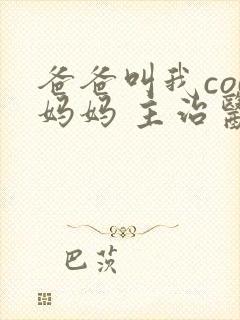 爸爸叫我co
妈妈 主治醫
巴茨